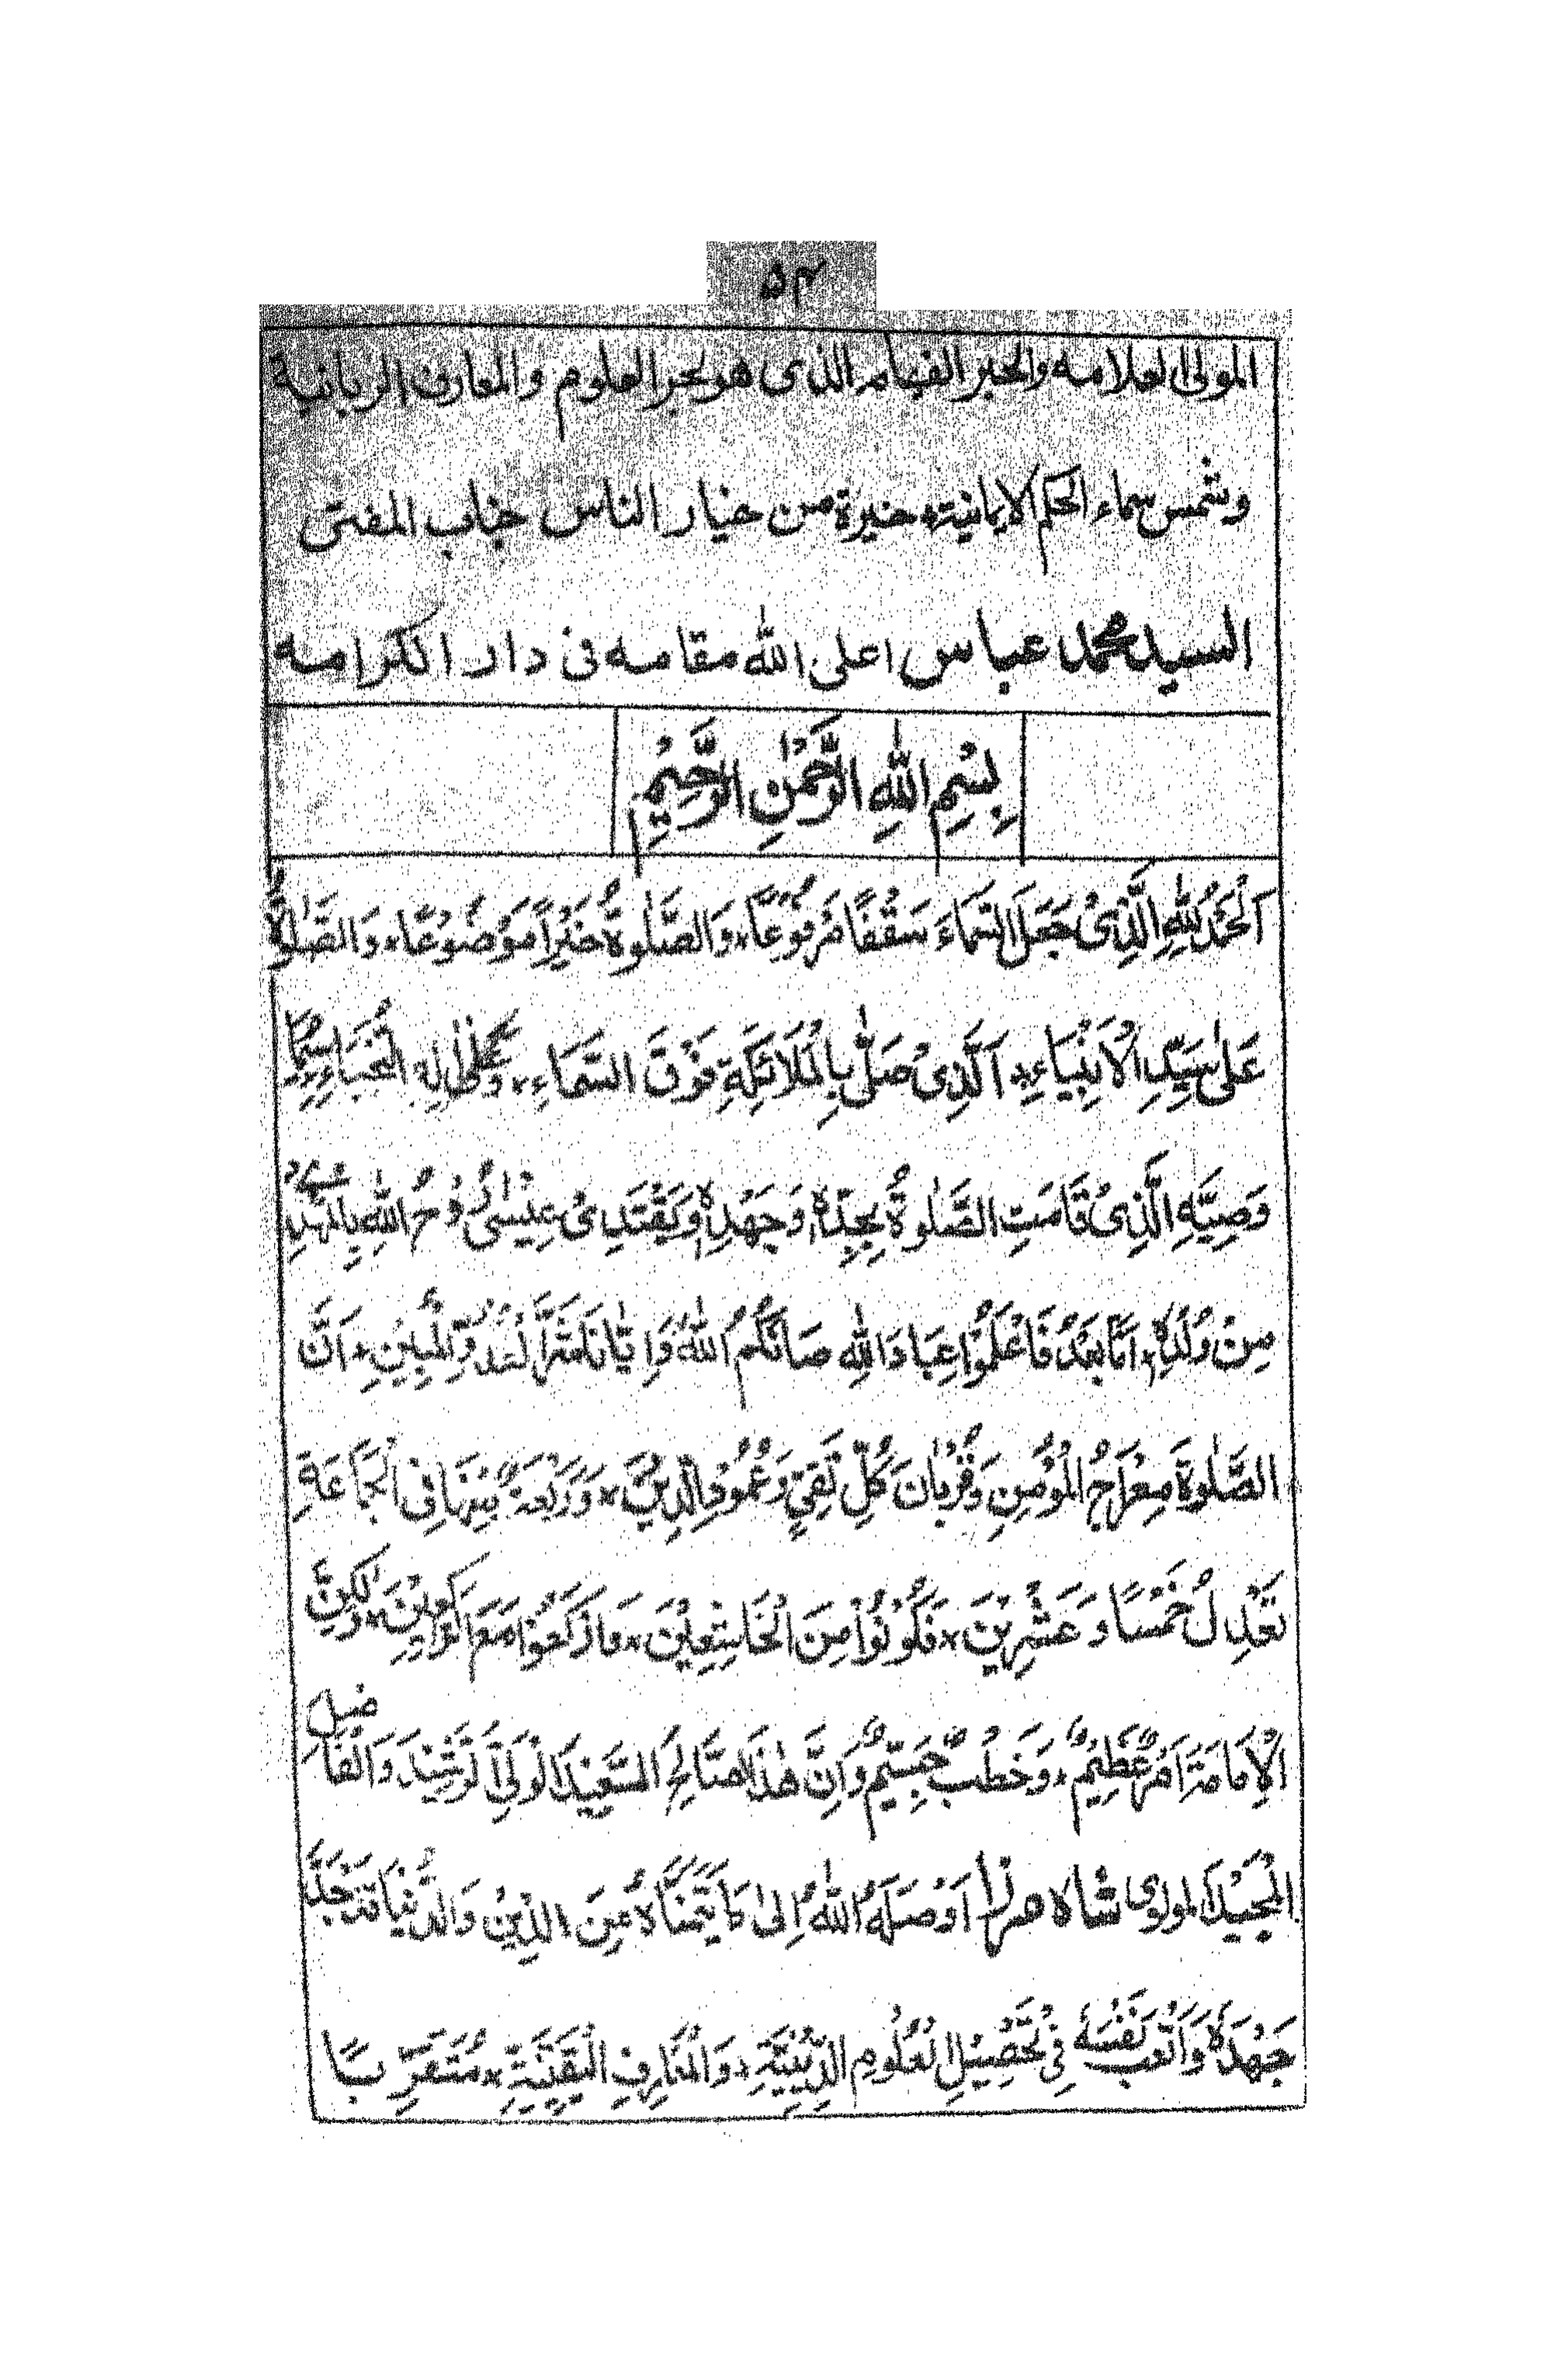 ۵۴
المولی العلامه والحبر الفهامه الذی هو بحر العلوم والمعارف الربانیة
وشمس سماء الحکم الایمانیة٭ خیرة من خیار الناس جناب المفتی
السید محمد عباس اعلی الله مقامه فی دار الکرامه
بِسْمِ اللهِ الرَّحْمٰنِ الرَّحِیْمِ
اَلْحَمْدُ لِلّٰهِ الَّذِیْ جَعَلَ السَّمَاءَ سَقْفًا مَرْفُوْعًا٭ وَالصَّلٰوةَ خَیْرًا مَوْضُوْعًا٭ وَالصَّلٰوةُ
عَلٰی سَیِّدِ الْاَنْبِیَاءِ٭ اَلَّذِیْ صَلّٰی بِالْمَلَائِکَةِ فَوْقَ السَّمَاءِ٭ وَعَلٰی اٰلِهِ النُّجَبَاءِ٭ سِیَّمَا
وَصِیِّهِ الَّذِیْ قَامَتِ الصَّلٰوةُ بِجِدِّهٖ وَجَهْدِهٖ وَیَقْتَدِیْ عِیْسٰی رُوْحُ اللهِ بِالْمَهْدِیِّ
مِنْ وُلْدِهٖ٭ اَمَّا بَعْدُ فَاعْلَمُوْا عِبَادَ اللهِ صَانَکُمُ اللهُ وَاِیَّانَا مَعَرَّةَ الشُّرُوْرِ الْمُبِیْنِ٭ اَنَّ
الصَّلٰوةَ مِعْرَاجُ الْمُؤْمِنِ وَقُرْبَانُ کُلِّ تَقِیٍّ وَعُمُوْدُ الدِّیْنِ٭ وَرَکْعَةٌ مِنْهَا فِی الْجَمَاعَةِ
تَعْدِلُ خَمْسًا وَعَشْرِیْنَ٭ فَکُوْنُوْا مِنَ الْخَاشِعِیْنَ٭ وَارْکَعُوْا مَعَ الرَّاکِعِیْنَ٭ وَلٰکِنَّ
الْاِمَامَةَ اَمْرٌ عَظِیْمٌ٭ وَخَطْبٌ جَسِیْمٌ وَاِنَّ هٰذَا الصَّالِحَ السَّعِیْدَ الْوَلِیَّ الرَّشِیْدَ وَالْفَاضِلَ
الْمَجِیْدَ المولوی شاه مرزا اَوْصَلَهُ اللهُ اِلٰی مَا یَتَمَنَّاهُ مِنَ الدِّیْنِ وَالدُّنْیَا قَدْ جَدَّ
جَهْدَهٗ وَاَتْعَبَ نَفْسَهٗ فِیْ تَحْصِیْلِ الْعُلُوْمِ الدِّیْنِیَّةِ٭ وَالْمَعَارِفِ الْیَقِیْنِیَّةِ٭ مُتَقَرِّبًا